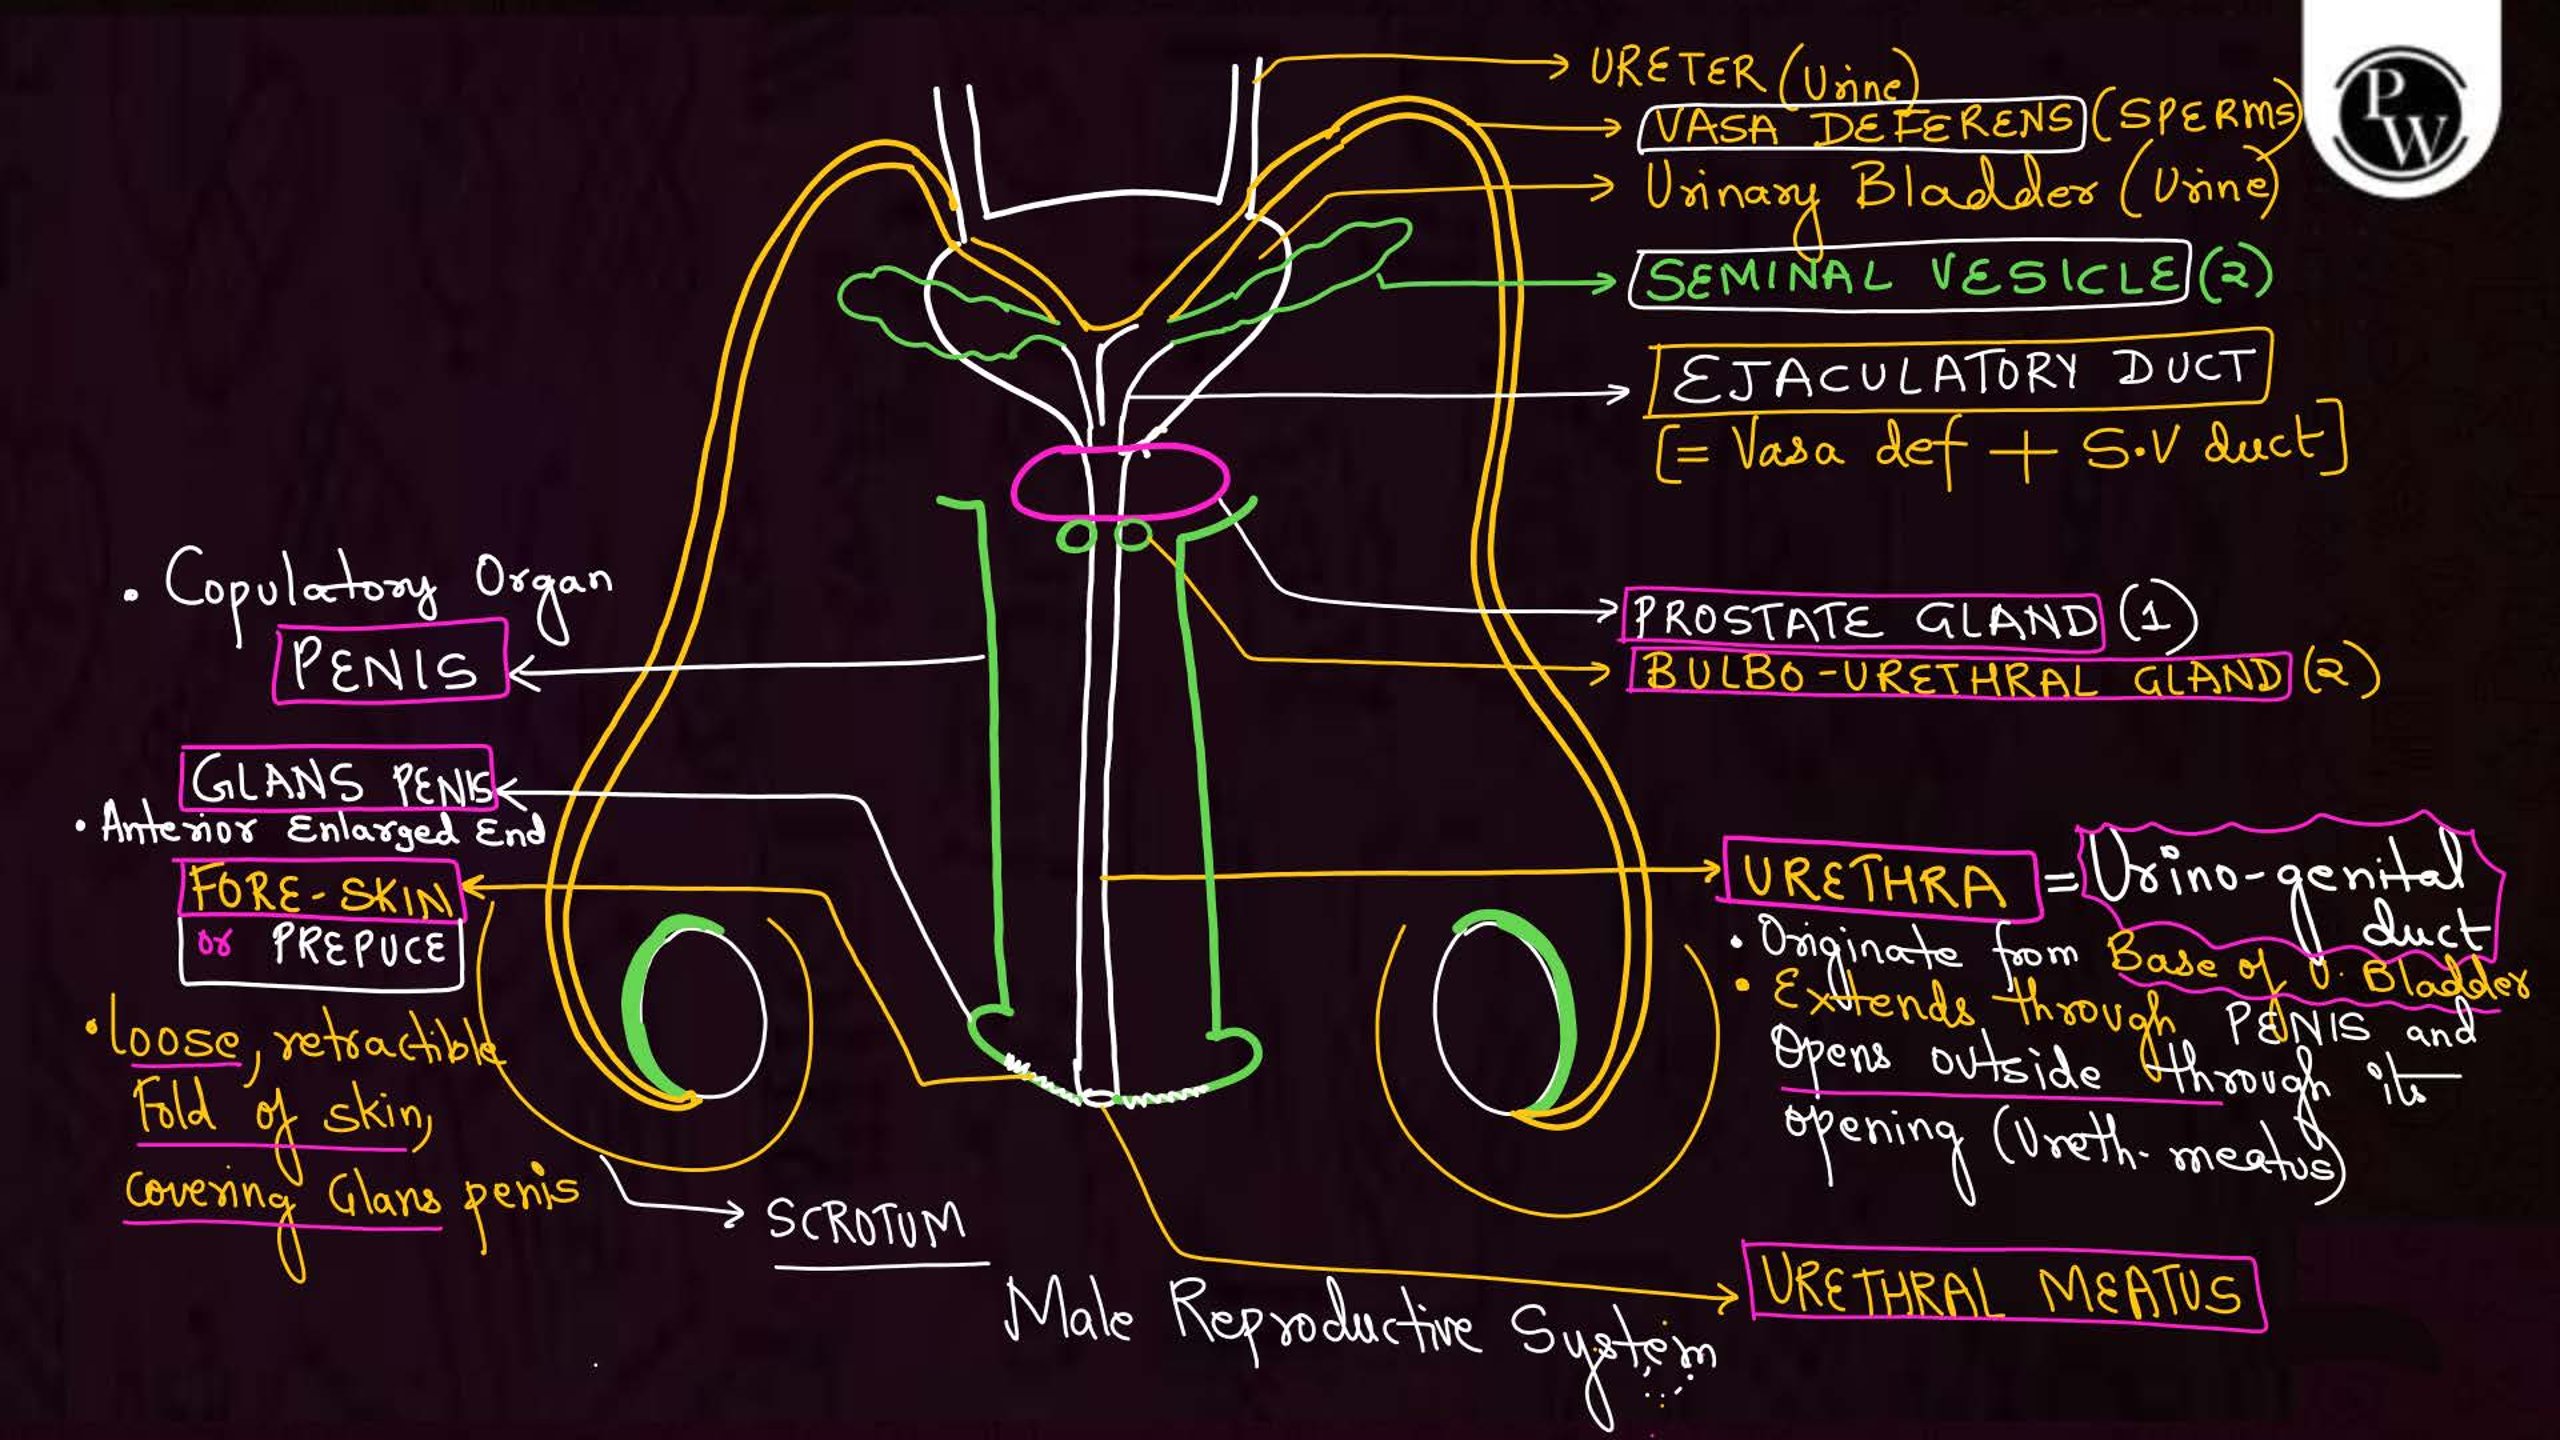 URETER (Urine)
VASA DEFERENS (SPERMS)
Urinary Bladder (Urine)
SEMINAL VESICLE (2)
EJACULATORY DUCT
[= Vasa def + S.V duct]
PROSTATE GLAND (1)
BULBO-URETHRAL GLAND (2)
URETHRA = Urino-genital
duct
• Originate from Base of U. Bladder
• Extends through PENIS and
Opens outside through its
opening (Ureth. meatus)
URETHRAL MEATUS
• Copulatory Organ
PENIS
GLANS PENIS
• Anterior Enlarged End
FORE-SKIN
or PREPUCE
• Loose, retractible
Fold of skin,
covering Glans penis
SCROTUM
Male Reproductive System
PW